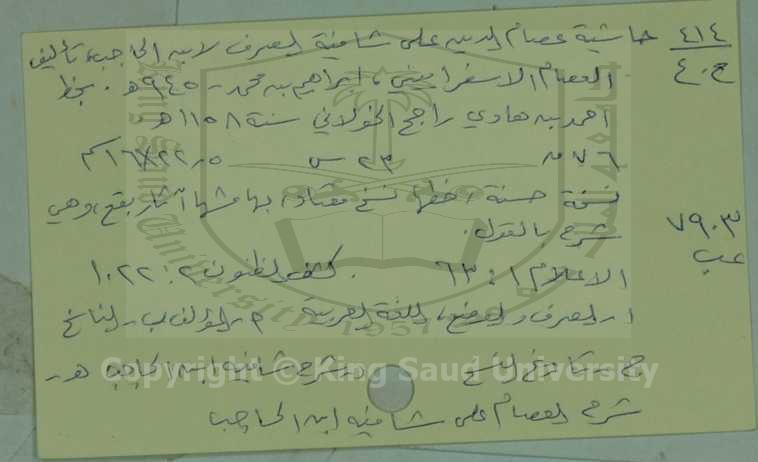 ٤١٤ حاشية عصام الدين على شافية الصرف لابن الحاجب، تأليف
ع.٤ العصام الاسفراييني، إبراهيم بن محمد - ٩٤٥هـ. بخط
احمد بن هادي راجح الخولاني سنة ١١٥٨هـ.
٧٦ ق ٢٣ س ٢٢٫٥×١٦سم
نسخة حسنة، خطها نسخ معتاد، بهامشها آثار بقع، وهي
شرح بالقول.
٧٩٠٣
عب
الاعلام ١: ٦٣ . كشف الظنون ٢: ١٠٢٢
١- الصرف و، اللغة العربية أ- المؤلف ب- الناسخ
ج- تاريخ النسخ د- شرح شافية ابن الحاجب هـ-
شرح العصام على شافية ابن الحاجب
King Saud University
1957
Copyright © King Saud University